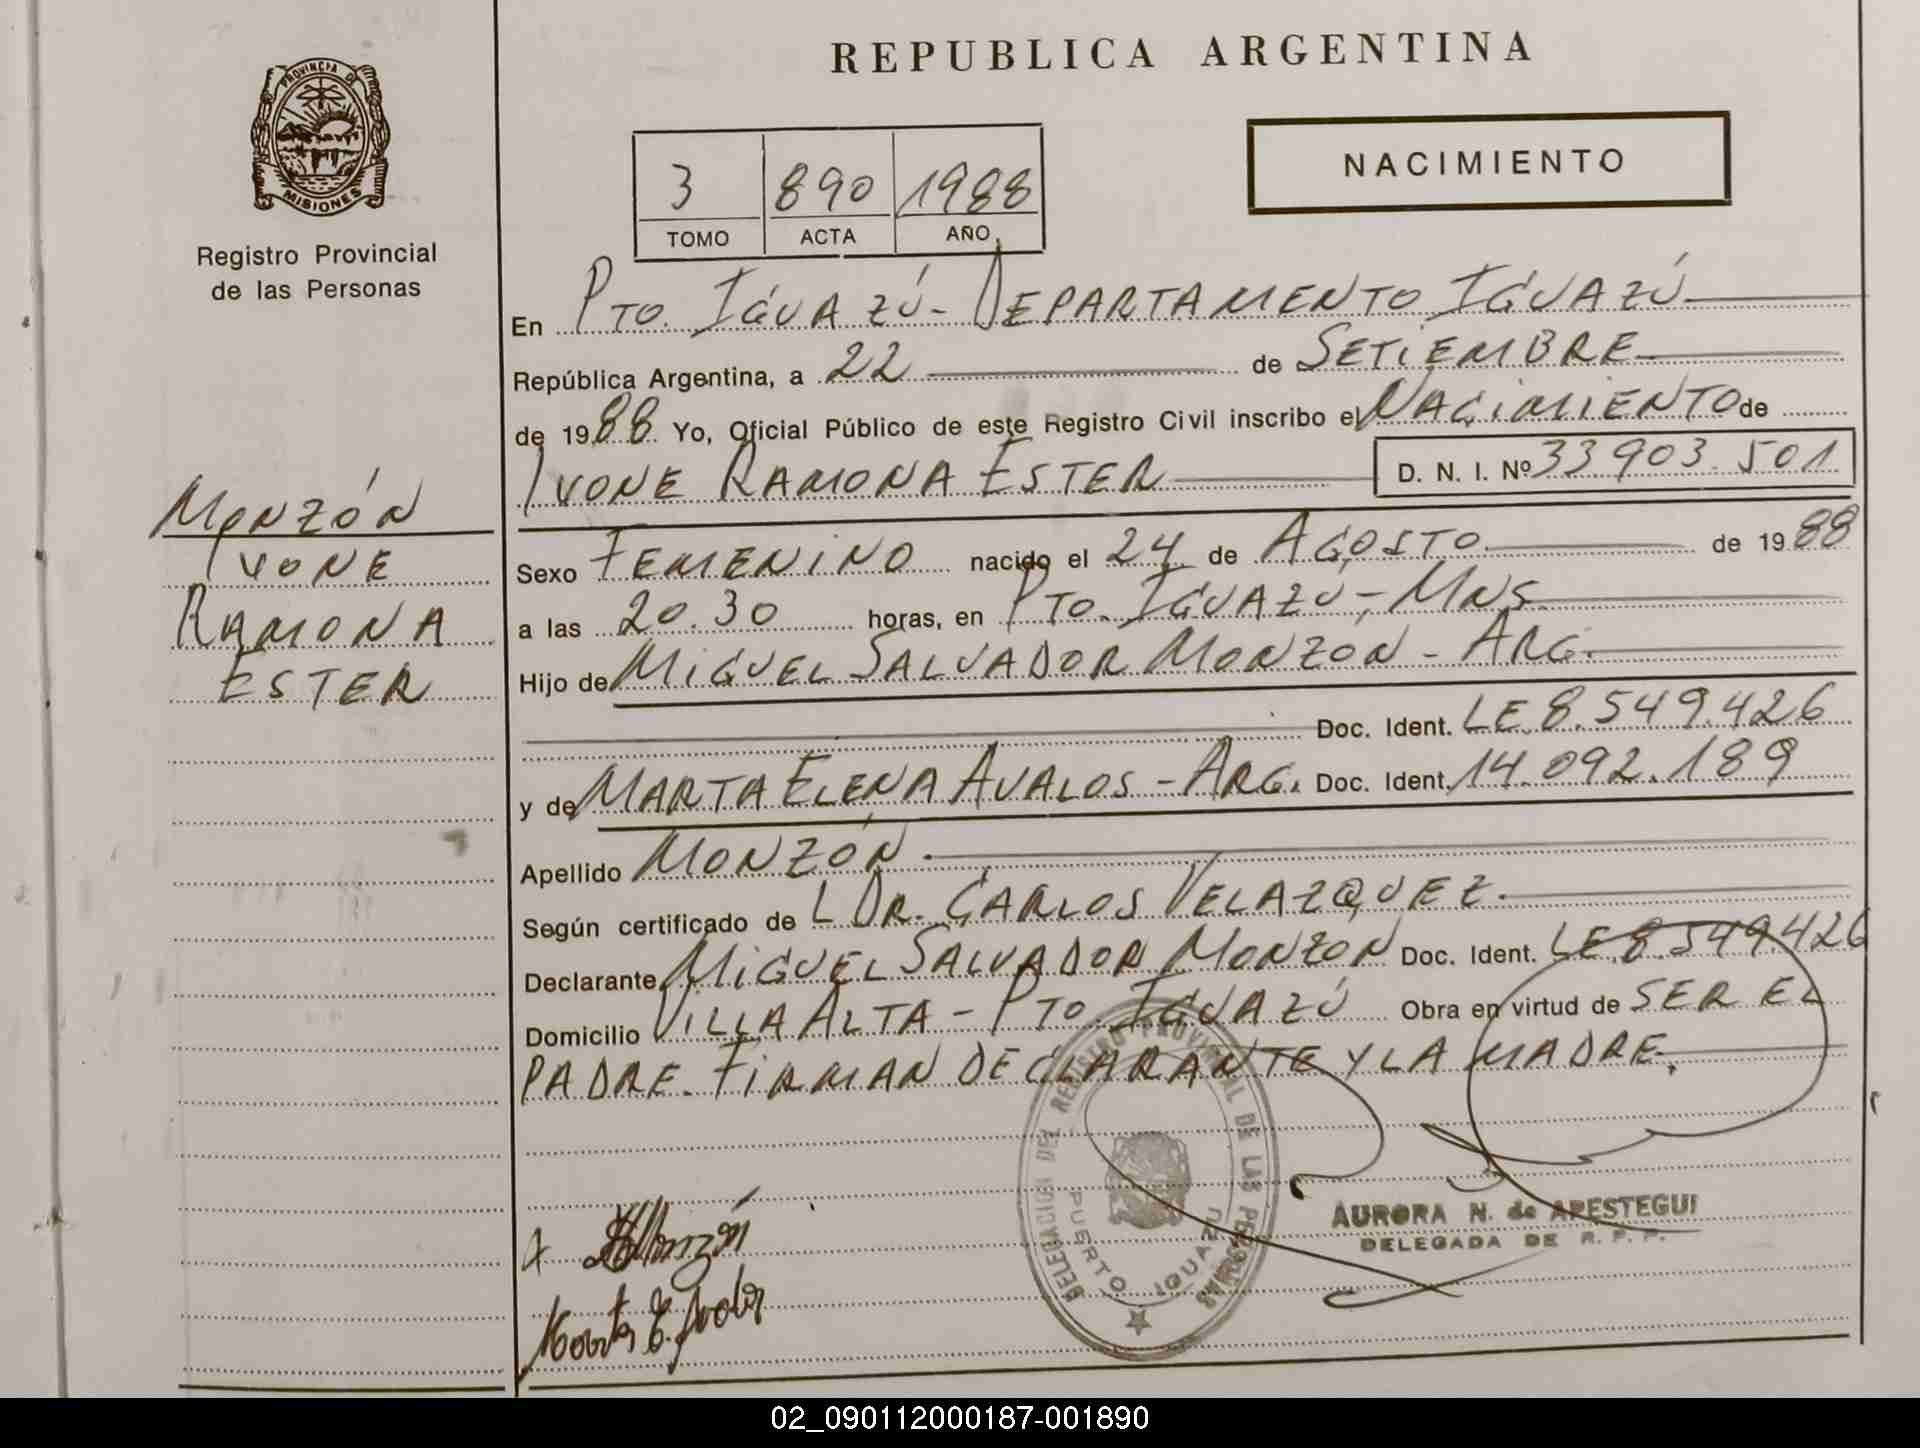 REPUBLICA ARGENTINA
PROVINCIA DE
MISIONES
Registro Provincial
de las Personas
NACIMIENTO
3 890 1988
TOMO ACTA AÑO
MONZÓN
IVONE
RAMONA
ESTER
En PTO. IGUAZÚ - DEPARTAMENTO IGUAZÚ
República Argentina, a 22 de SETIEMBRE
de 1988 Yo, Oficial Público de este Registro Civil inscribo el NACIMIENTO de
IVONE RAMONA ESTER D. N. I. Nº 33903.501
Sexo FEMENINO nacido el 24 de AGOSTO de 1988
a las 20.30 horas, en PTO. IGUAZÚ - MNS.
Hijo de MIGUEL SALVADOR MONZÓN - ARG.
Doc. Ident. LE 8.549.426
y de MARTA ELENA AVALOS - ARG. Doc. Ident. 14.092.189
Apellido MONZÓN.
Según certificado de L DR. CARLOS VELAZQUEZ.
Declarante MIGUEL SALVADOR MONZÓN Doc. Ident. LE 8.549.426
Domicilio VILLA ALTA - PTO IGUAZÚ Obra en virtud de SER EL
PADRE. FIRMAN DECLARANTE Y LA MADRE.
DELEGACION DEL REGISTRO PROVINCIAL DE LAS PERSONAS
PUERTO IGUAZU
AURORA N. de APESTEGUI
DELEGADA DE R. P. P.
Monzón
Marta E. Avalos
02_090112000187-001890